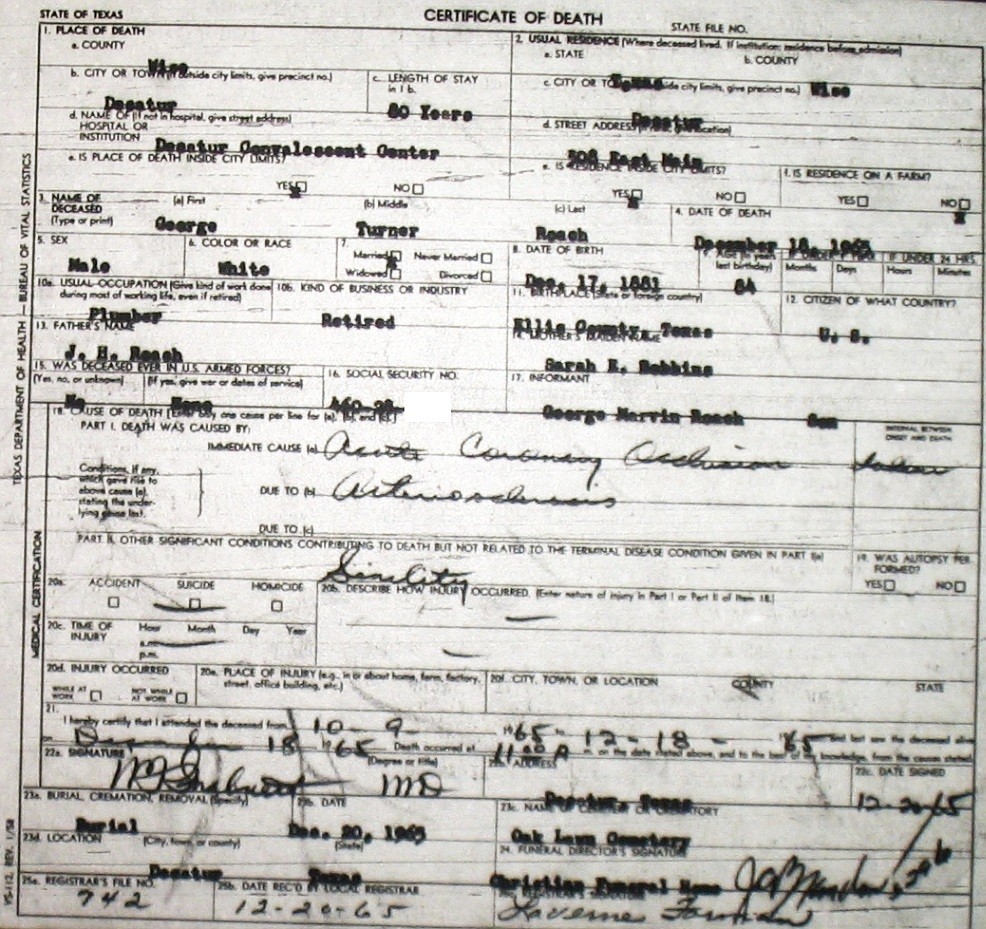 STATE OF TEXAS
CERTIFICATE OF DEATH
STATE FILE NO.
TEXAS DEPARTMENT OF HEALTH — BUREAU OF VITAL STATISTICS
1. PLACE OF DEATH
a. COUNTY
Wise
2. USUAL RESIDENCE (Where deceased lived. If institution: residence before admission)
a. STATE
Texas
b. COUNTY
Wise
b. CITY OR TOWN (If outside city limits, give precinct no.)
Decatur
c. LENGTH OF STAY in 1 b.
80 Years
c. CITY OR TOWN (If outside city limits, give precinct no.)
Decatur
d. NAME OF (If not in hospital, give street address) HOSPITAL OR INSTITUTION
Decatur Convalescent Center
d. STREET ADDRESS (If rural, give location)
East Main
e. IS PLACE OF DEATH INSIDE CITY LIMITS?
YES NO
e. IS RESIDENCE INSIDE CITY LIMITS?
YES NO
f. IS RESIDENCE ON A FARM?
YES NO
3. NAME OF DECEASED (Type or print)
(a) First
George
(b) Middle
Turner
(c) Last
Roach
4. DATE OF DEATH
December 18, 1965
5. SEX
Male
6. COLOR OR RACE
White
7. Married Never Married
Widowed Divorced
8. DATE OF BIRTH
Dec. 17, 1881
9. AGE (In years last birthday)
84
IF UNDER 1 YEAR
Months Days
IF UNDER 24 HRS.
Hours Minutes
10a. USUAL OCCUPATION (Give kind of work done during most of working life, even if retired)
Plumber
10b. KIND OF BUSINESS OR INDUSTRY
Retired
11. BIRTHPLACE (State or foreign country)
Ellis County, Texas
12. CITIZEN OF WHAT COUNTRY?
U. S.
13. FATHER'S NAME
J. H. Roach
14. MOTHER'S MAIDEN NAME
Sarah E. Robbins
15. WAS DECEASED EVER IN U.S. ARMED FORCES?
(Yes, no, or unknown) (If yes, give war or dates of service)
No None
16. SOCIAL SECURITY NO.
460-28-
17. INFORMANT
George Marvin Roach Son
MEDICAL CERTIFICATION
18. CAUSE OF DEATH [Enter only one cause per line for (a), (b), and (c).]
PART I. DEATH WAS CAUSED BY:
INTERVAL BETWEEN ONSET AND DEATH
IMMEDIATE CAUSE (a) Acute Coronary Occlusion
Conditions, if any, which gave rise to above cause (a), stating the underlying cause last.
DUE TO (b) Arteriosclerosis
DUE TO (c)
PART II. OTHER SIGNIFICANT CONDITIONS CONTRIBUTING TO DEATH BUT NOT RELATED TO THE TERMINAL DISEASE CONDITION GIVEN IN PART I(a)
Sinility
19. WAS AUTOPSY PERFORMED?
YES NO
20a. ACCIDENT SUICIDE HOMICIDE
20b. DESCRIBE HOW INJURY OCCURRED. (Enter nature of injury in Part I or Part II of Item 18.)
20c. TIME OF INJURY
Hour Month Day Year
a.m.
p.m.
20d. INJURY OCCURRED
WHILE AT WORK NOT WHILE AT WORK
20e. PLACE OF INJURY (e.g., in or about home, farm, factory, street, office building, etc.)
20f. CITY, TOWN, OR LOCATION COUNTY STATE
21. I hereby certify that I attended the deceased from 10-9- 1965 to 12-18- 1965 and last saw the deceased alive
on December 18 1965 Death occurred at 11:00 A m. on the date stated above, and to the best of my knowledge, from the causes stated.
22a. SIGNATURE (Degree or title)
MD
22b. ADDRESS
Decatur, Texas
22c. DATE SIGNED
12-20-65
23a. BURIAL, CREMATION, REMOVAL (Specify)
Burial
23b. DATE
Dec. 20, 1965
23c. NAME OF CEMETERY OR CREMATORY
Oak Lawn Cemetery
23d. LOCATION (City, town, or county) (State)
Decatur Texas
24. FUNERAL DIRECTOR'S SIGNATURE
Christian Funeral Home
25a. REGISTRAR'S FILE NO.
742
25b. DATE REC'D BY LOCAL REGISTRAR
12-20-65
25c. REGISTRAR'S SIGNATURE
Laverne
VS-112, REV. 1/58